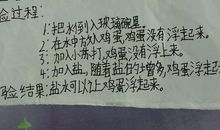 验过程:
1:把水倒入玻璃碗里
2:在水中放入鸡蛋,鸡蛋没有浮起来。
3:加小苏打,鸡蛋没有浮上来。
4:加入盐,随着盐的增多,鸡蛋浮起来。
验结果:盐水可以让鸡蛋浮起来。